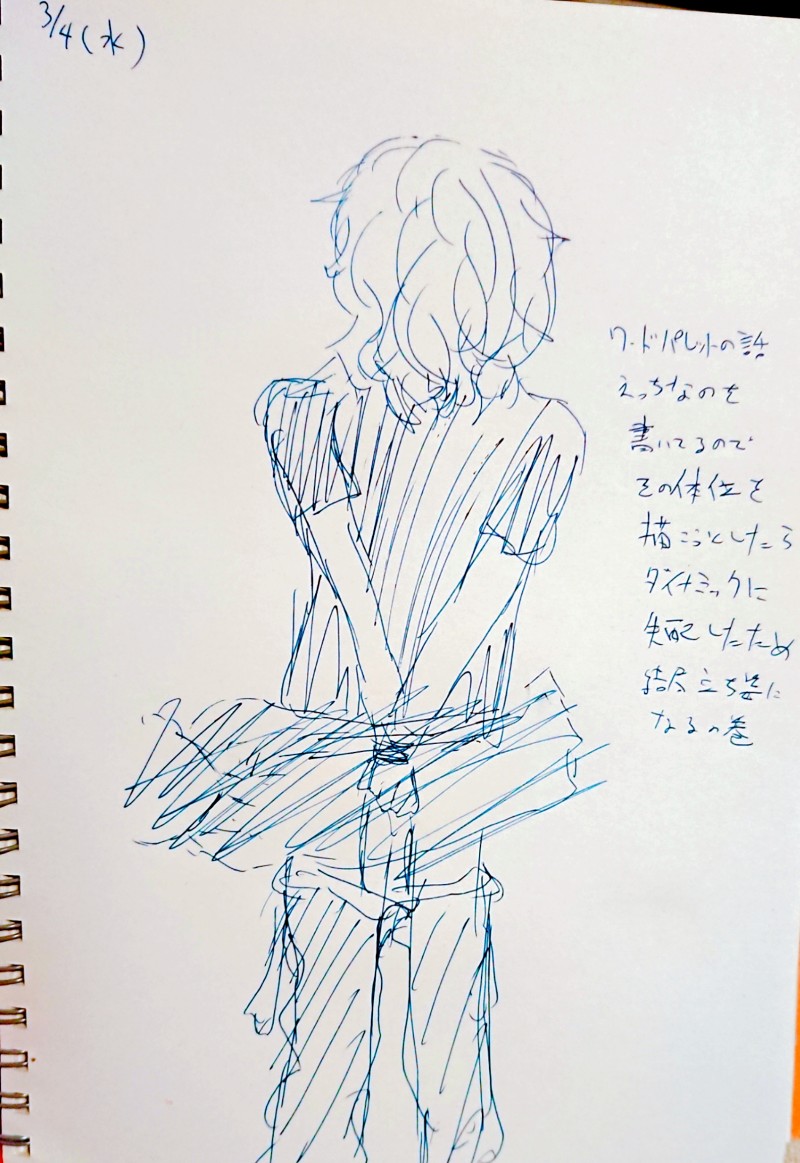 3/4(水)
ワードパレットの話
えっちなのを
書いてるので
その体位を
描こうとしたら
ダイナミックに
失敗したため
結局立ち姿に
なるの巻